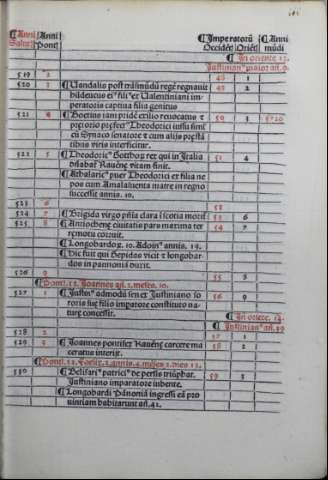 ¶Anni Salut. Anni Pont. ¶Imperatorũ Occidẽt. Oriẽt. ¶Anni mũdi
¶In oriente 13.
Justinianꝰ maior añ. 9.
519 2 48 1
520 3 ¶Vandalis post trãsmũdũ regẽ regnauit 49 2
hildericus eiꝰ filiꝰ et Valentiniani im-
peratoris captiua filia genitus
521 4 ¶Boetius iam pridẽ exilio reuocatus 50 3 5720
pretorio prefectꝰ Theodorici iussu simul
cũ Symaco senatore et cum alijs põsula
ribus viris interficitur.
522 5 ¶Theodoricꝰ Gotthoꝝ rex qui in Italia 51 4
dñabat Rauẽne vitam finit.
¶Athalaricꝰ puer Theodorici et filia ne
pos cum Amalasuenta matre in regno
successit annis. 10.
523 6 52
524 7 ¶Brigida virgo pñia clara i scotia morit̃ 53 6
525 8 ¶Antiochene ciuitatis pars maxima ter 54 7
remotu corruit.
¶Longobardoꝝ. 10. Adoinꝰ annis. 19.
¶Hic fuit qui Gepidas vicit et longobar-
dos in pannoniã duxit.
526 9 55 8
¶Pont. 52. Joannes añ. 2. meses. 10.
527 ¶Justinꝰ admodũ senex Justiniano so 56 9
roris sue filio imparatore constituto na
ture concessit.
¶In oriete. 14.
Justinianꝰ añ. 39
528 2 57 1
529 3 ¶Joannes pontifex Rauẽne carcere ma 58 2
ceratus interijt.
¶Pont. 53. Foelix. 4. annis. 4. meses. 2. dies 12.
530 ¶Belisariꝰ patriciꝰ de persis triũphat 59 3
Justiniano imparatore iubente.
¶Longobardi Pãnoniã ingressi eã pro
uintiam habitarunt añ. 42.